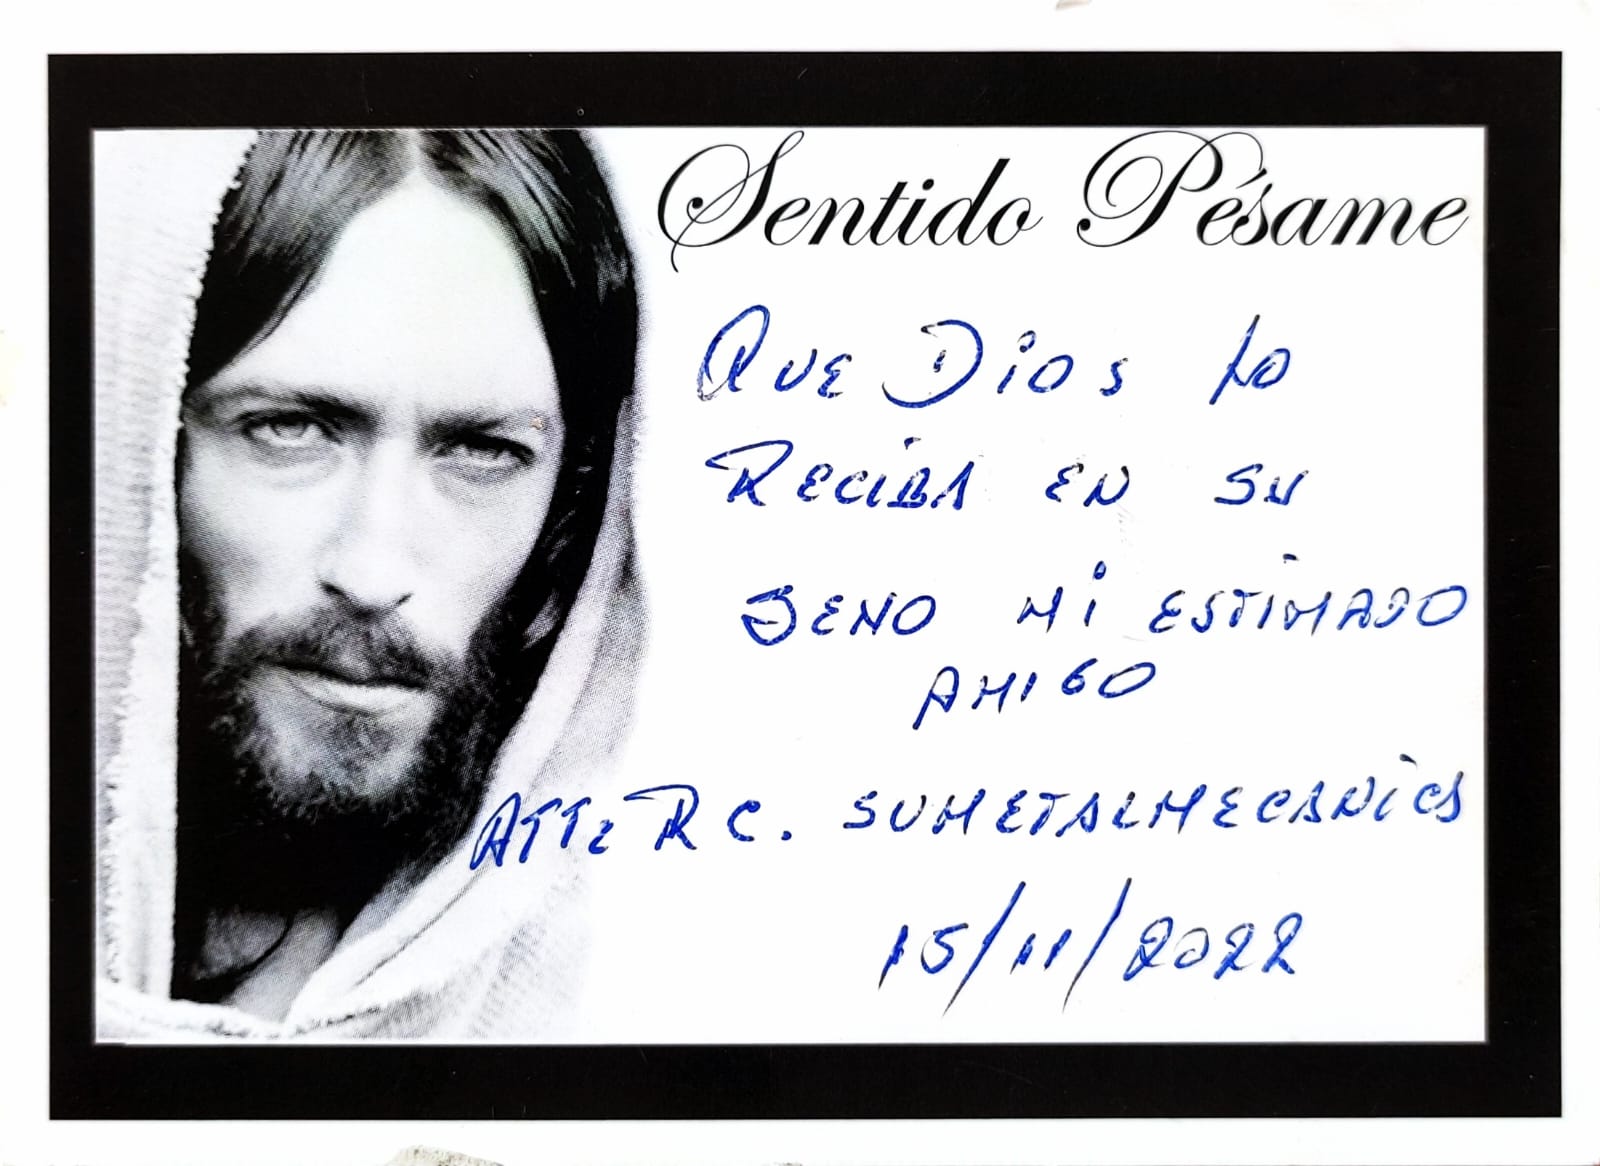 Sentido Pésame
QUE DIOS LO
RECIBA EN SU
SENO MI ESTIMADO
AMIGO
ATTE R C. SUMETALMECANICA
15/11/2022